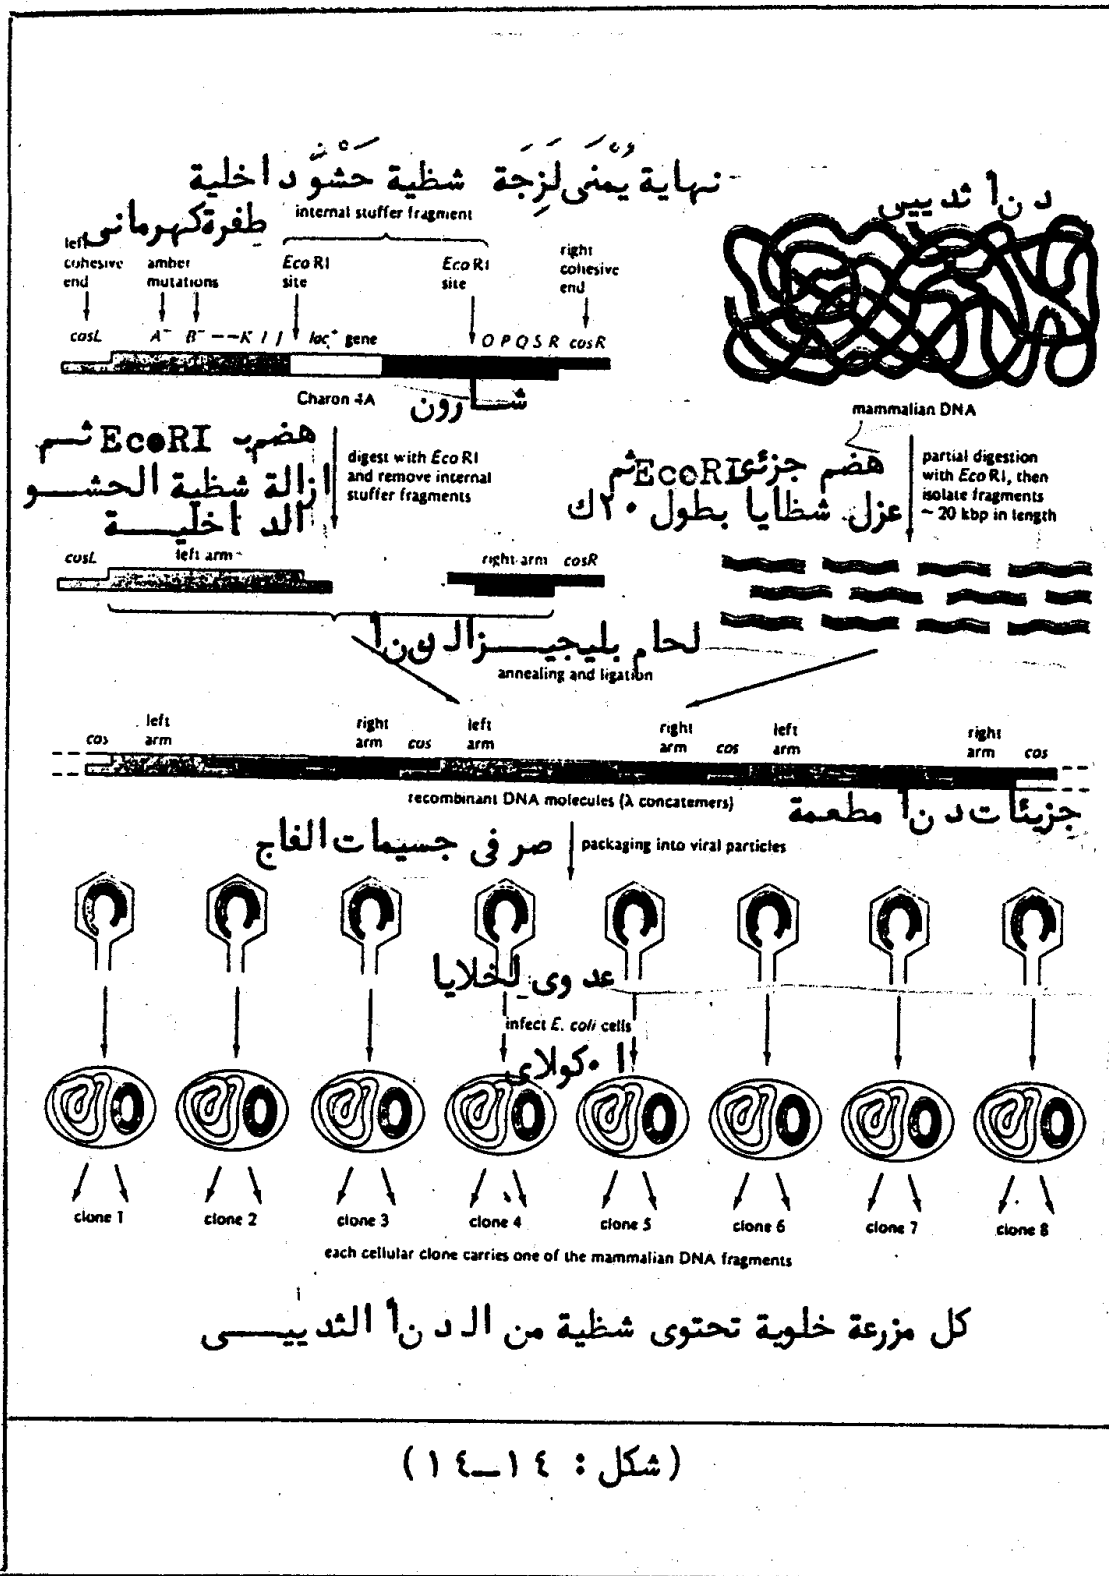 نهاية يُمْنَى لَزِجَة شظية حَشْوَّ داخلية
دنأ ثدييى
طفرة كهرمانى
internal stuffer fragment
left cohesive end
amber mutations
EcoRI site
EcoRI site
right cohesive end
cosL A⁻ B⁻ –––K I J lac⁺ gene O P Q S R cosR
Charon 4A
شارون
mammalian DNA
هضمب EcoRI ثم
ازالة شظية الحشو
الداخلية
digest with EcoRI
and remove internal
stuffer fragments
هضم جزئى EcoRI ثم
عزل شظايا بطول ٢٠ك
partial digestion
with EcoRI, then
isolate fragments
~ 20 kbp in length
cosL left arm right arm cosR
لحام بليجيز
annealing and ligation
cos left arm right arm cos left arm right arm cos left arm right arm cos
recombinant DNA molecules (λ concatemers)
جزيئات دنأ مطعمة
صر فى جسيمات الفاج
packaging into viral particles
عدوى لخلايا
infect E. coli cells
ا٠كولاى
clone 1 clone 2 clone 3 clone 4 clone 5 clone 6 clone 7 clone 8
each cellular clone carries one of the mammalian DNA fragments
كل مزرعة خلوية تحتوى شظية من الدنأ الثدييى
(شكل : ١٤–١٤)